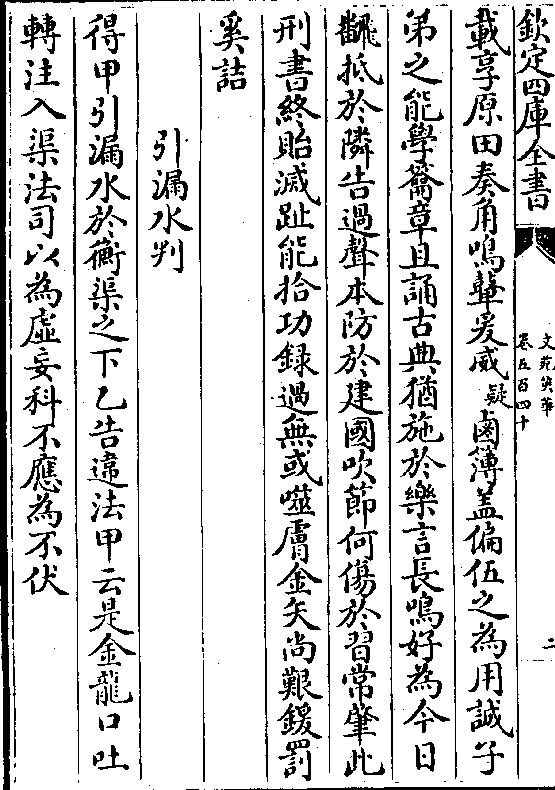 欽定四庫全書
文苑英華
卷五百四十
二
載享原田奏角鳴鼙爰威疑鹵簿蓋偏伍之為用誠子
弟之能學籥章且誦古典猶施於樂言長鳴好為今日
飜抵於隣告過聲本防於建國吹節何傷於習常肇此
刑書終貽滅趾能拾功録過無或噬膚金矢尚艱鍰罰
奚詰
引漏水判
得甲引漏水於衡渠之下乙告違法甲云是金龍口吐
轉注入渠法司以為虛妄科不應為不伏